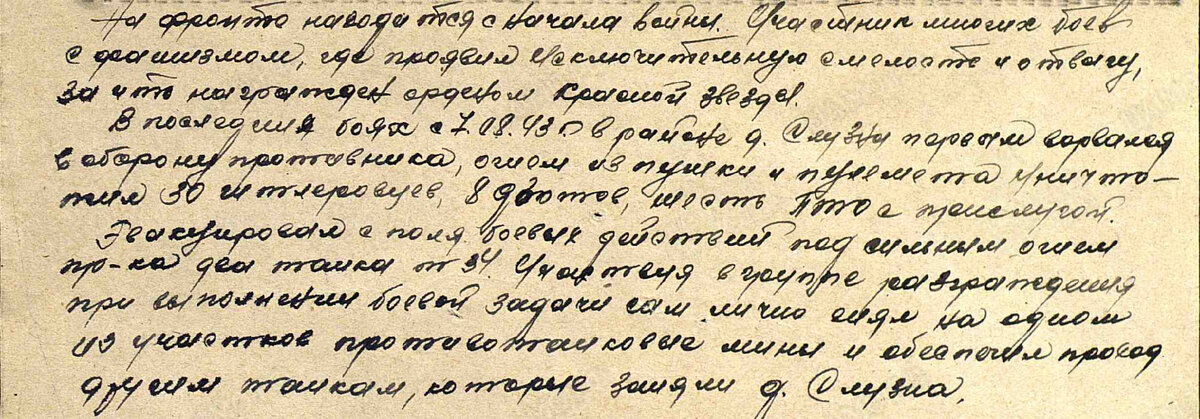 На фронте находится с начала войны. Участник многих боев
с фашизмом, где проявил исключительную смелость и отвагу,
за что награжден орденом Красной звезды.
В последних боях с 7.08.43 г в районе д. Слузна первым ворвался
в оборону противника, огнем из пушки и пулемета уничто-
жил 30 гитлеровцев, 8 дзотов, шесть ПТО с прислугой.
Эвакуировал с поля боевых действий под сильным огнем
пр-ка два танка т 34. Участвуя в группе разграждения
при выполнении боевой задачи сам лично снял на одном
из участков противотанковые мины и обеспечил проход
другим танкам, которые заняли д. Слузна.